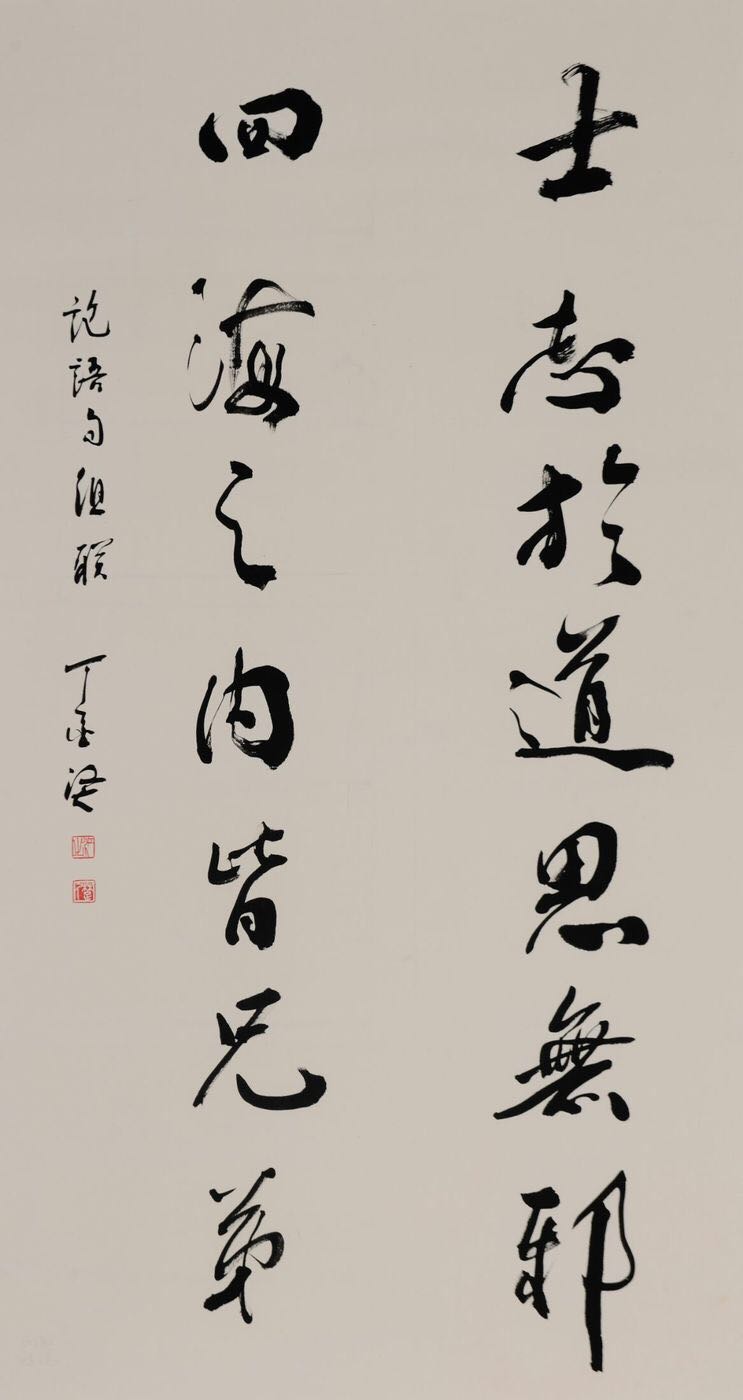 士志於道思無邪
四海之内皆兄弟
論語句組联 丁